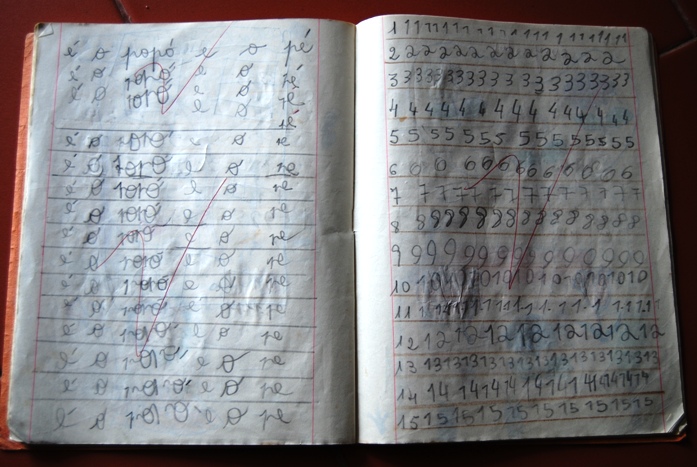 é o popó e o pé
é o popó e o pé
é o popó e o pe
pé
é o popó e o pe
é o popó e o pe
é o popó e o pe
é o popó e o pe
é o popó e o pe
é o popó e o pe
é o popó e o pe
é o popó e o pe
é o popó e o pe
é o popó e o pe
é o popó e o pe
é o popó e o pe
1 1 1 1 1 1 1 1 1 1 1 1 1 1 1 1 1
2 2 2 2 2 2 2 2 2 2 2 2 2
3 3 3 3 3 3 3 3 3 3 3 3 3 3 3 3 3 3
4 4 4 4 4 4 4 4 4 4 4 4 4 4
5 5 5 5 5 5 5 5 5 5 5 5 5 5 5
6 6 6 6 6 6 6 6 6 6 6 6 6
7 7 7 7 7 7 7 7 7 7 7 7 7
8 8 8 8 8 8 8 8 8 8 8 8 8 8 8 8
9 9 9 9 9 9 9 9 9 9 9 9 9 9
10 10 10 10 10 10 10 10 10 10 10 10
11 11 11 11 11 11 11 11 11 11
12 12 12 12 12 12 12 12 12 12
13 13 13 13 13 13 13 13 13 13 13 13 13
14 14 14 14 14 14 14 14 14 14 14
15 15 15 15 15 15 15 15 15 15